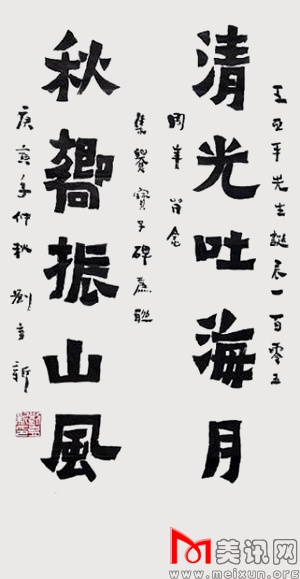 王亚平先生誕辰一百零五
清光吐海月
周年 念
集爨寶子碑為聯
秋響振山風
庚寅年仲秋 劉 新
美讯网
www.meixun.org